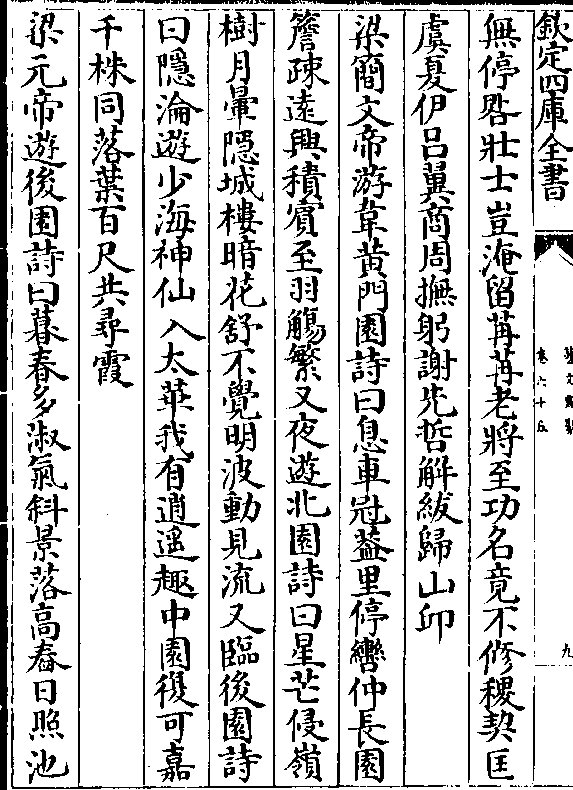 欽定四庫全書
藝文類聚
卷六十五
九
無停晷壯士豈淹留苒苒老將至功名竟不修稷契匡
虞夏伊呂翼商周撫躬謝先哲解紱歸山卬
梁簡文帝游韋黃門園詩曰息車冠葢里停轡仲長園
簷疎逺興積賓至羽觴繁又夜遊北園詩曰星芒侵嶺
樹月暈隱城樓暗花舒不覺明波動見流又臨後園詩
曰隱淪遊少海神仙入太華我有逍遥趣中園復可嘉
千株同落葉百尺共尋霞
梁元帝遊後園詩曰暮春多淑氣斜景落高舂日照池